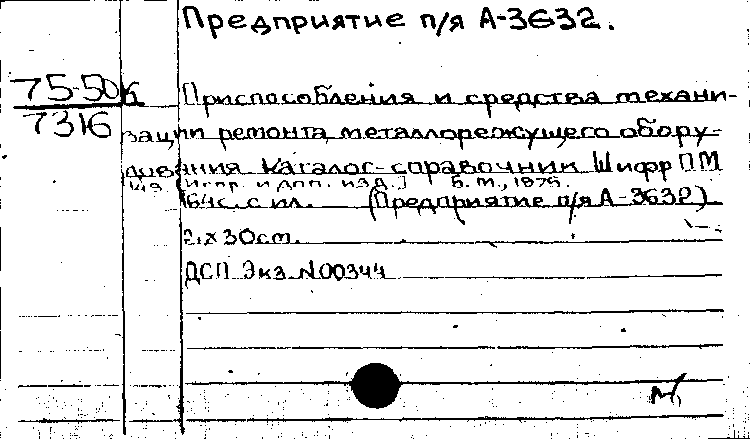 Предприятие п/я А-3632.
75-50к
7316
Приспособления и средства механи-
зации ремонта металлорежущего обору-
дования Каталог-справочник Шифр ПМ
149 [Испр. и доп. изд.] Б.М., 1975.
164с. с ил. (Предприятие п/я А-3632)
21х30см.
ДСП Экз №00344